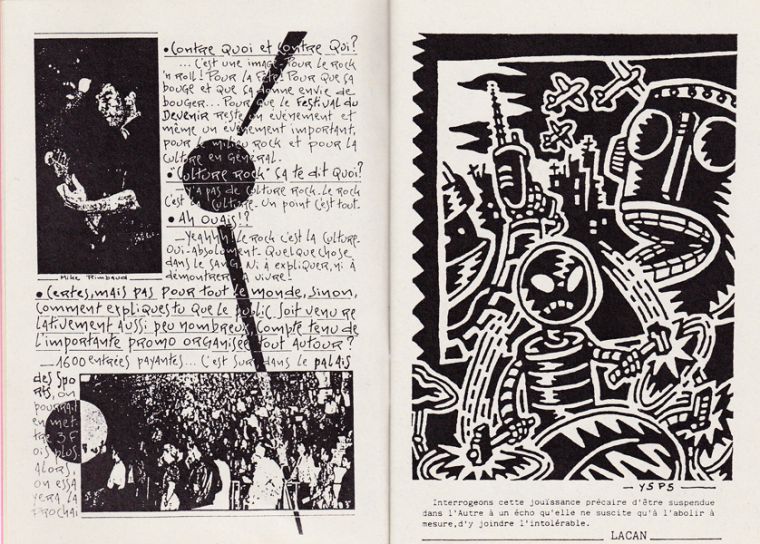 • Contre quoi et contre qui?
... C'est une image. Pour le rock
'n roll! Pour la fête! Pour que ça
bouge et que ça donne envie de
bouger... Pour que le Festival du
Devenir reste un événement et
même un événement important,
pour le milieu rock et pour la
culture en général.
• "Culture rock" ça te dit quoi?
— Y'a pas de culture rock. Le rock
c'est la culture. Un point c'est tout.
• Ah ouais!?
— Yeahhh! Le rock c'est la culture.
Oui. Absolument. Quelque chose
dans le sang. Ni à expliquer, ni à
démontrer. À vivre!
Mike Rimbaud
• Certes, mais pas pour tout le monde, sinon,
comment expliques tu que le public soit venu re
lativement aussi peu nombreux, compte tenu de
l'importante promo organisée tout autour?
— 1600 entrées payantes... C'est sur dans le palais
des spo
rts, on
pourrait
en met
tre 3 F
ois plus.
Alors,
on essa
yera la
prochai
— YSPS —
Interrogeons cette jouïssance précaire d'être suspendue
dans l'Autre à un écho qu'elle ne suscite qu'à l'abolir à
mesure,d'y joindre l'intolérable.
LACAN